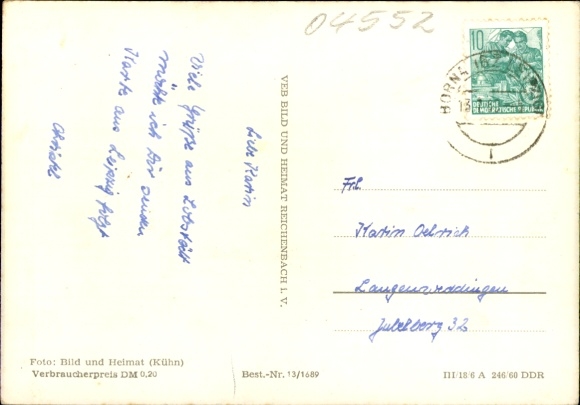 04552
10
DEUTSCHE
DEMOKRATISCHE REPUBLIK
BORNA
Liebe Karin
Viele Grüße aus Lobstädt
möchte ich Dir senden
Karte aus Leipzig folgt
VEB BILD UND HEIMAT REICHENBACH I. V.
Frl.
Karin Oelrich
Langenweddingen
32
Foto: Bild und Heimat (Kühn)
Verbraucherpreis DM 0,20
Best.-Nr. 13/1689
III/18/6 A 246/60 DDR